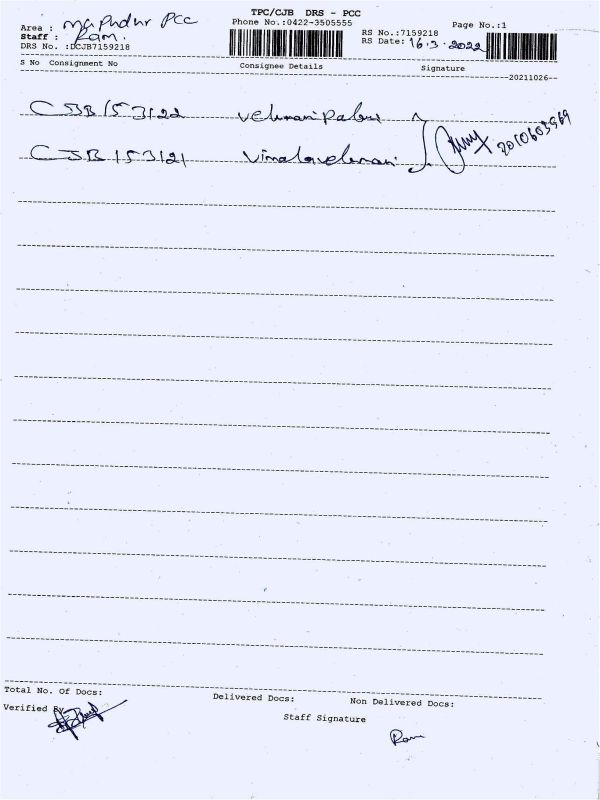 TPC/CJB DRS - PCC
Area : Mgpudur PCC
Phone No.:0422-3505555
Page No.:1
Staff : Ram.
RS No.:7159218
DRS No. :DCJB7159218
RS Date: 16-3-2022
S No Consignment No
Consignee Details
Signature
20211026
CJB153122 velumani Pabu
CJB153121 vimalavelumani
Total No. Of Docs:
Delivered Docs:
Non Delivered Docs:
Verified By
Staff Signature
Ram